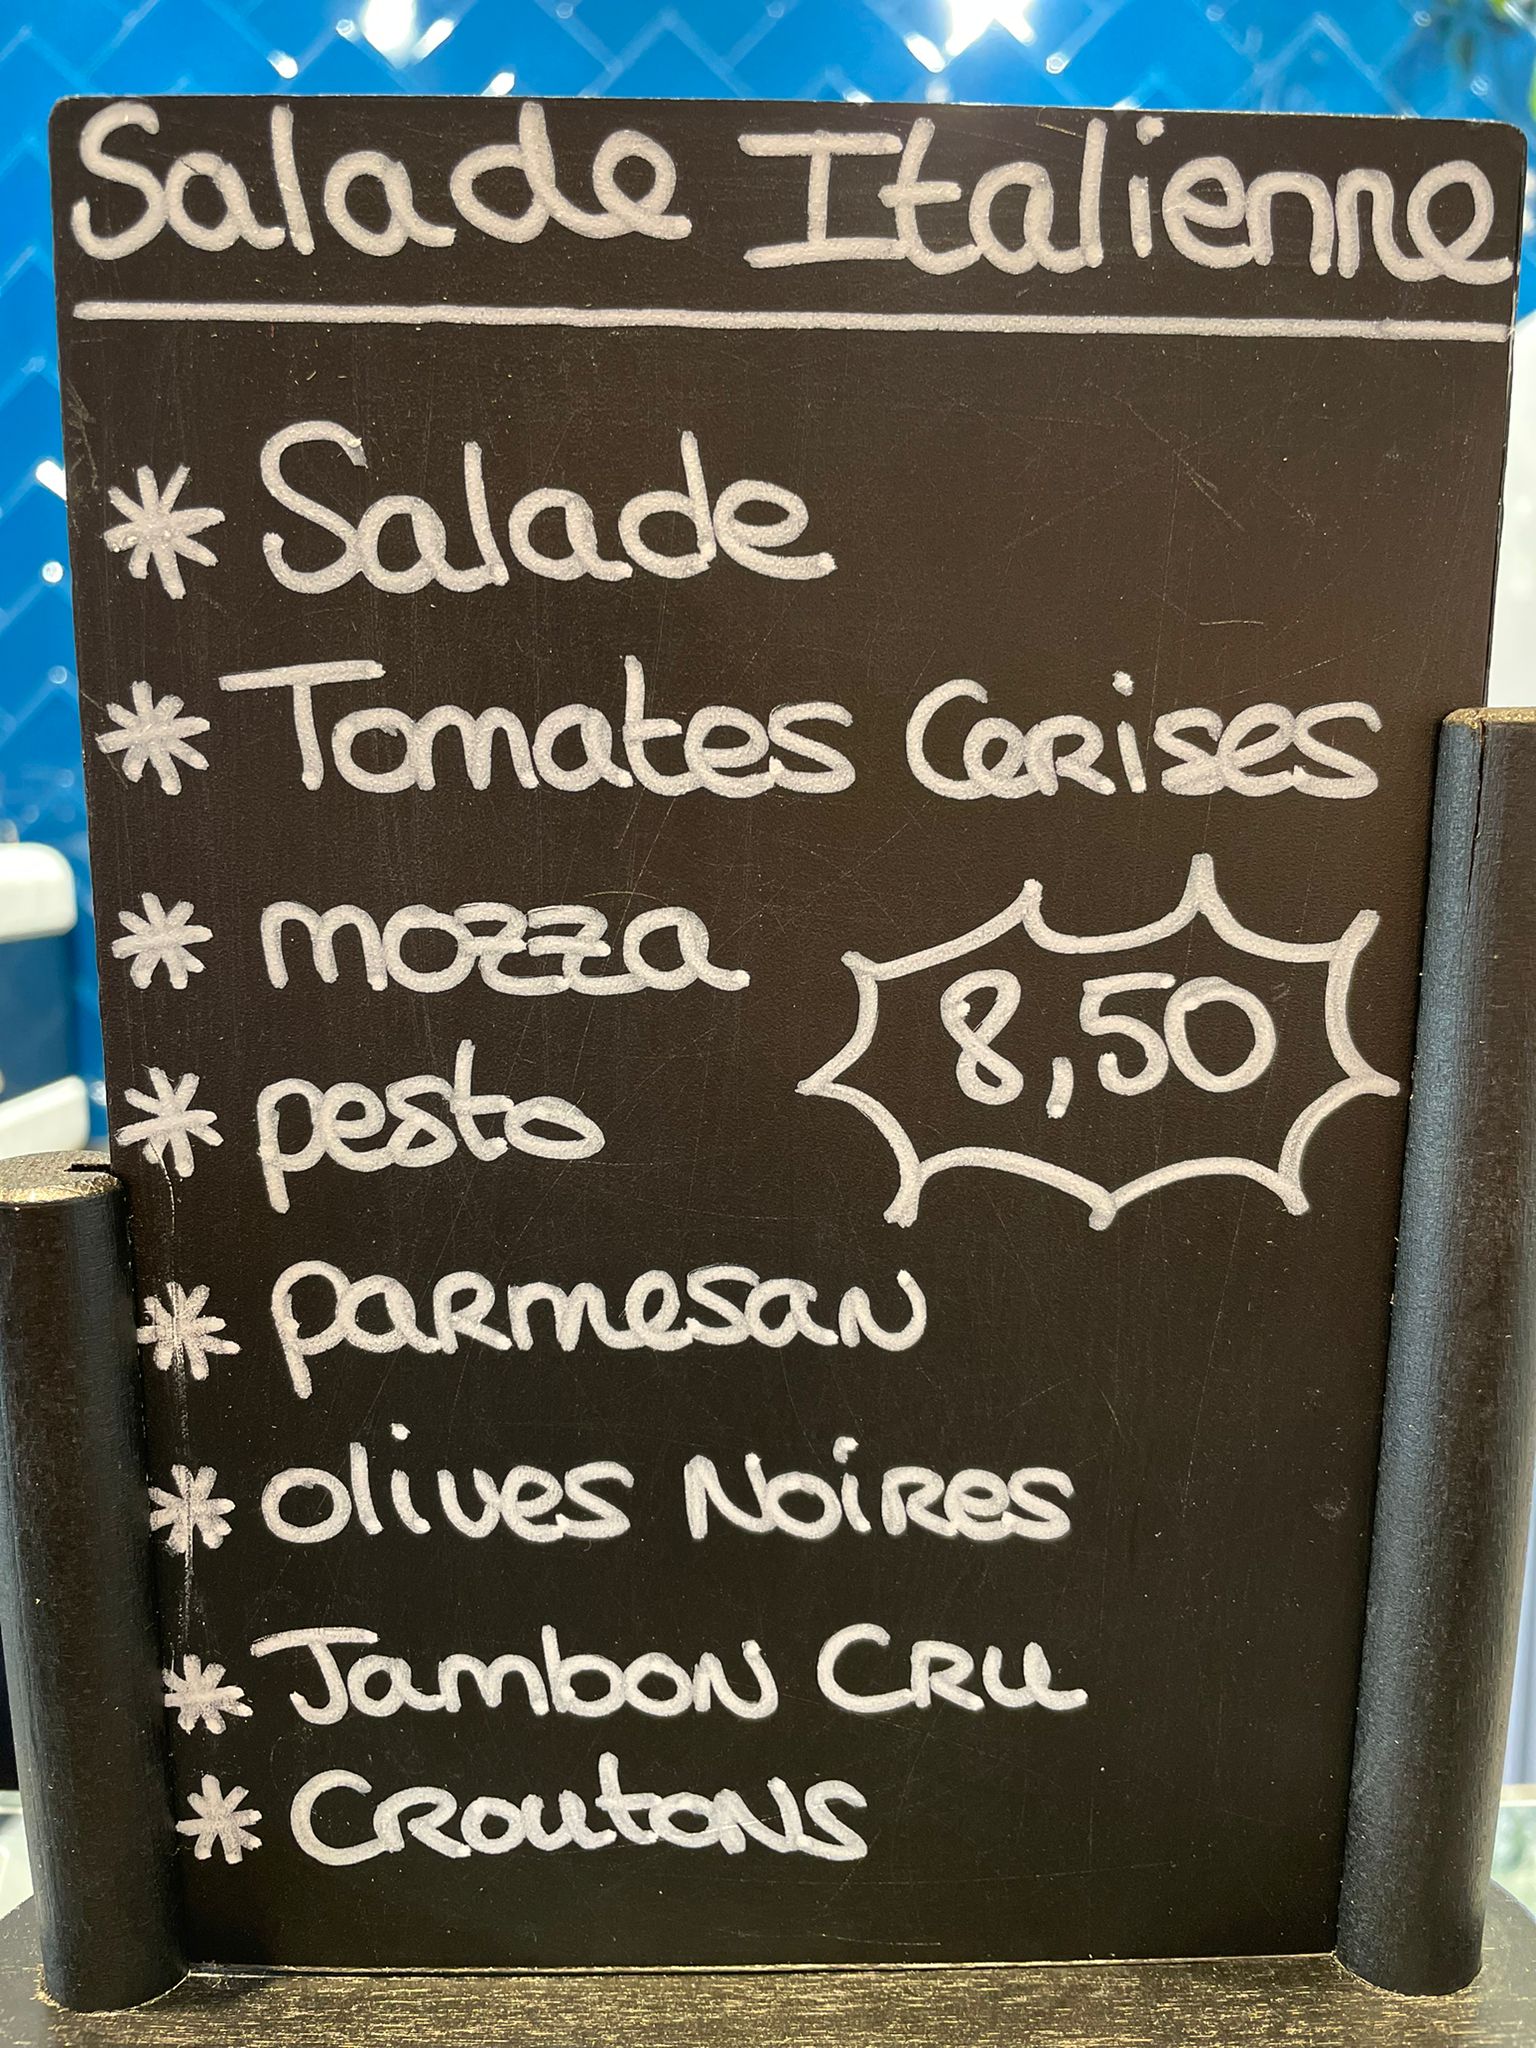 Salade Italienne
* Salade
* Tomates Cerises
* mozza
8,50
* pesto
* parmesan
* olives Noires
* Jambon Cru
* Croutons